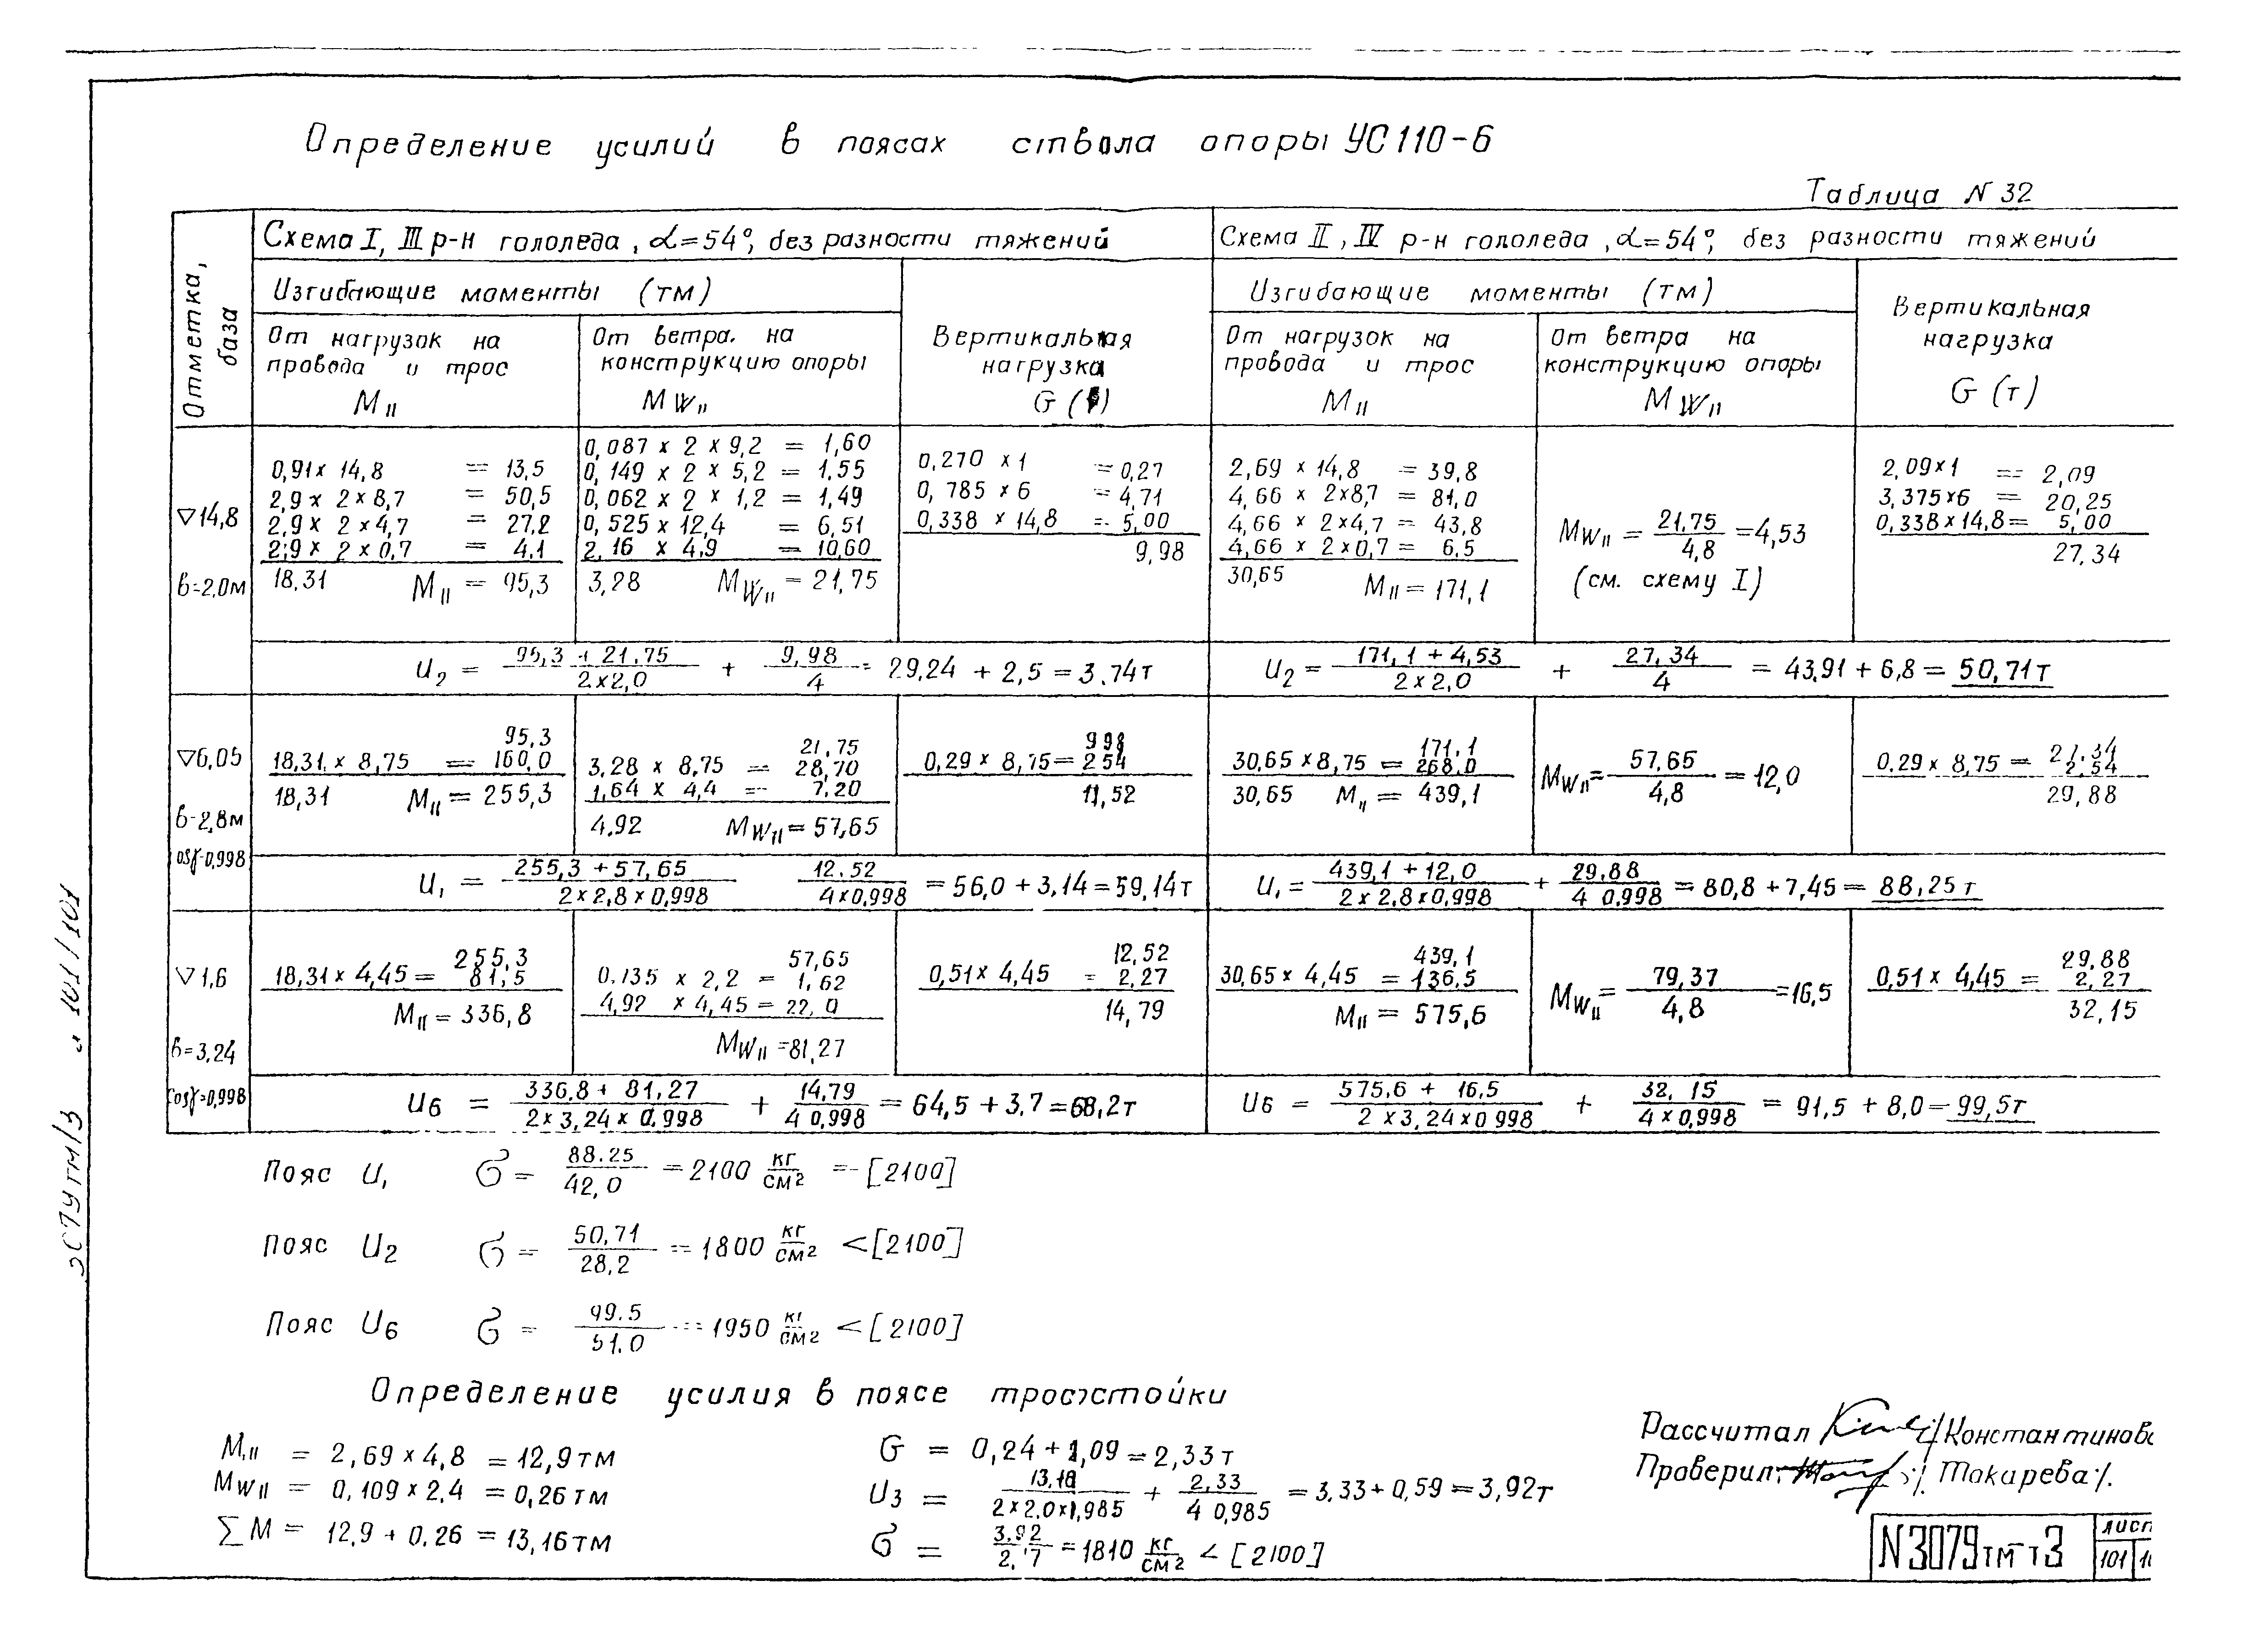 Определение усилий в поясах ствола опоры УС110-6
Таблица N 32
Отметка, база
Схема I, III р-н гололеда, α=54°, без разности тяжений
Схема II, IV р-н гололеда, α=54°, без разности тяжений
Изгибающие моменты (тм)
Изгибающие моменты (тм)
От нагрузок на провода и трос
M II
От ветра. на конструкцию опоры
M W II
Вертикальная нагрузка
G
От нагрузок на провода и трос
M II
От ветра на конструкцию опоры
M W II
Вертикальная нагрузка
G (т)
▽14,8
в=2,0м
0,91 х 14,8 = 13,5
2,9 х 2 х 8,7 = 50,5
2,9 х 2 х 4,7 = 27,2
2,9 х 2 х 0,7 = 4,1
18,31 M II = 95,3
0,087 х 2 х 9,2 = 1,60
0,149 х 2 х 5,2 = 1,55
0,062 х 2 х 1,2 = 1,49
0,525 х 12,4 = 6,51
2,16 х 4,9 = 10,60
3,28 M W II = 21,75
0,270 х 1 = 0,27
0,785 х 6 = 4,71
0,338 х 14,8 = 5,00
9,98
2,69 х 14,8 = 39,8
4,66 х 2х8,7 = 81,0
4,66 х 2х4,7 = 43,8
4,66 х 2х0,7 = 6,5
30,65 M II = 171,1
M W II = 21,75 / 4,8 = 4,53
(см. схему I)
2,09х1 = 2,09
3,375х6 = 20,25
0,338х14,8 = 5,00
27,34
U2 = 95,3 + 21,75 / 2х2,0 + 9,98 / 4 = 29,24 + 2,5 = 3.74т
U2 = 171,1 + 4,53 / 2х2,0 + 27,34 / 4 = 43,91 + 6,8 = 50,71т
▽6,05
в-2,8м
osγ-0,998
95,3
18,31. х 8,75 = 160,0
18,31 M II = 255,3
21,75
3,28 х 8,75 = 28,70
1,64 х 4,4 = 7,20
4.92 M W II = 57,65
998
0,29 х 8,75 = 254
11,52
171,1
30,65 х 8,75 = 268,0
30,65 M II = 439,1
M W II = 57,65 / 4,8 = 12,0
0,29 х 8,75 = 2,54
29,88
U1 = 255,3 + 57,65 / 2х2,8х0,998 12,52 / 4х0,998 = 56,0 + 3,14 = 59,14т
U1 = 439,1 + 12,0 / 2х2,8х0,998 + 29,88 / 4 0,998 = 80,8 + 7,45 = 88,25т
▽1,6
в=3,24
cosγ=0,998
255,3
18,31 х 4,45 = 81,5
M II = 336,8
57,65
0,135 х 2,2 = 1,62
4,92 х 4,45 = 22,0
M W II = 81,27
12,52
0,51 х 4,45 = 2,27
14,79
439,1
30,65 х 4,45 = 136,5
M II = 575,6
M W II = 79,37 / 4,8 = 16,5
29,88
0,51 х 4,45 = 2,27
32,15
U6 = 336,8 + 81,27 / 2х3,24х0,998 + 14,79 / 4 0,998 = 64,5 + 3,7 = 68,2т
U6 = 575,6 + 16,5 / 2х3,24х0 998 + 32,15 / 4х0,998 = 91,5 + 8,0 = 99,5т
Пояс U1 σ = 88.25 / 42,0 = 2100 кг/см2 = [2100]
Пояс U2 σ = 50,71 / 28,2 = 1800 кг/см2 < [2100]
Пояс U6 σ = 99.5 / 51.0 = 1950 кг/см2 < [2100]
Определение усилия в поясе тросостойки
M II = 2,69 х 4,8 = 12,9 тм
M W II = 0,109 х 2,4 = 0,26 тм
∑M = 12,9 + 0,26 = 13,16 тм
G = 0,24 + 2,09 = 2,33 т
U3 = 13,16 / 2х2,0х0,985 + 2,33 / 4 0,985 = 3,33 + 0,59 = 3,92т
σ = 3.92 / 2,17 = 1810 кг/см2 < [2100]
Рассчитал /Константинова
Проверил: /Токарева/.
N3079тм-т3
лист
101